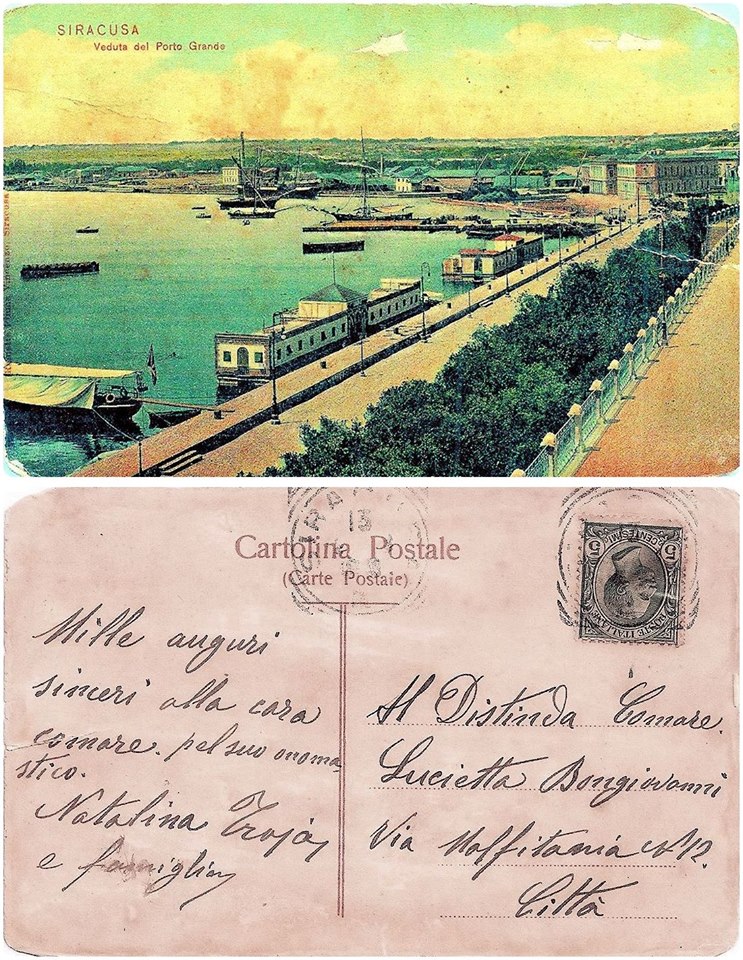 SIRACUSA
Veduta del Porto Grande
Siracusa
Cartolina Postale
(Carte Postale)
13
5 CENTESIMI 5
POSTE ITALIANE
Mille auguri
sinceri alla cara
comare. pel suo onoma
stico.
Natalina Troja
e famiglia
Al Distinda Comare.
Lucietta Bongiovanni
Via Malfitania N 12.
Città